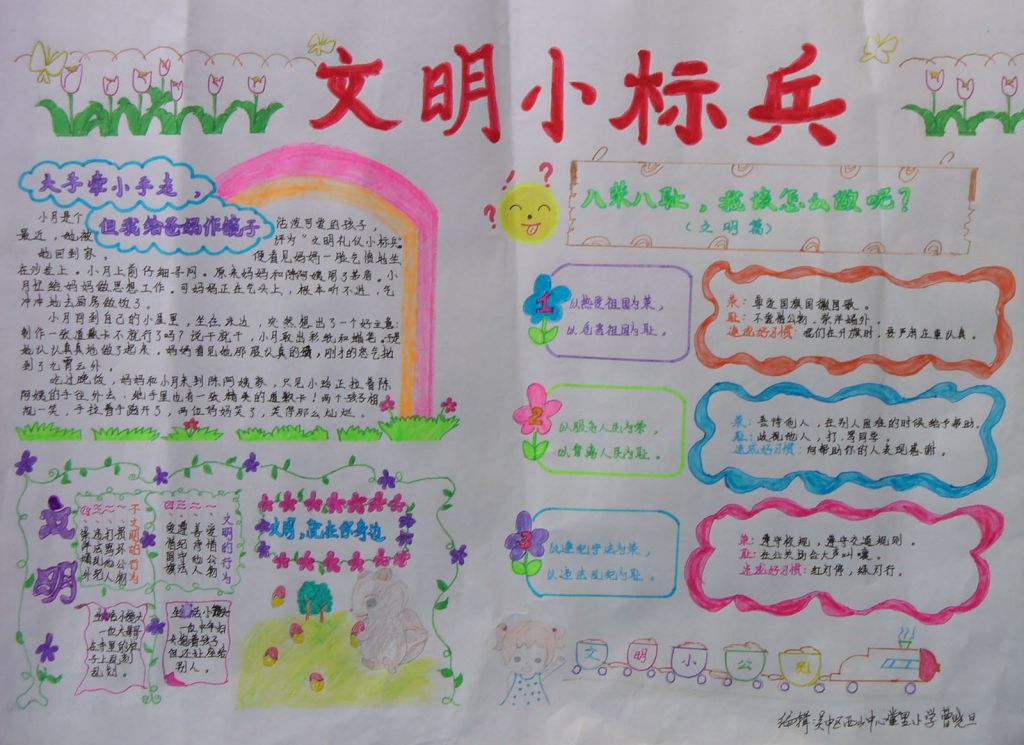 文明小标兵
大手牵小手走，
但我给爸妈作镜子
小月是个
活泼可爱的孩子，
最近，她被
评为“文明礼仪小标兵”
她回到家，
便看见妈妈一脸气愤地坐
在沙发上。小月上前仔细寻问。原来妈妈和陈阿姨闹了矛盾。小
月忙给妈妈做思想工作。可妈妈正在气头上，根本听不进，气
冲冲地去厨房做饭了。
小月回到自己的小屋里，坐在床边，突然想出了一个好主意：
制作一张道歉卡不就行了吗？说干就干，小月取出彩纸和蜡笔，于是
她认认真真地做了起来。妈妈看见她那股认真的模，刚才的怒气抛
到了九霄云外。
吃过晚饭，妈妈和小月来到陈阿姨家，只见小玲正拉着陈
阿姨的手往外去，她手里也有一张精美的道歉卡！两个孩子相
视一笑，手拉着手跑开了，两位妈妈笑了，笑得那么灿烂。
八荣八耻，我该怎么做呢？
（文明篇）
1
以热爱祖国为荣，
以危害祖国为耻。
荣：尊重国旗国徽国歌。
耻：不爱惜公物，崇洋媚外。
造成好习惯：我们在升旗时，要严肃庄重认真。
2
以服务人民为荣，
以背离人民为耻。
荣：善待他人，在别人困难的时候给予帮助。
耻：歧视他人，打、骂同学。
造成好习惯：向帮助你的人表现感谢。
3
以遵纪守法为荣，
以违法乱纪为耻。
荣：遵守校规，遵守交通规则。
耻：在公共场合大声叫嚷。
造成好习惯：红灯停，绿灯行。
文明
不文明的行为
文明的行为
文明，就在你身边
生活小镜头
一位大哥哥
在手里的棍
子上乱刻
乱划。
生活小镜头
一位中年妇
女抱着孩子
但还让座给
别人。
文明小公民
编辑：吴中区西山中心堂里小学 曹晓旦